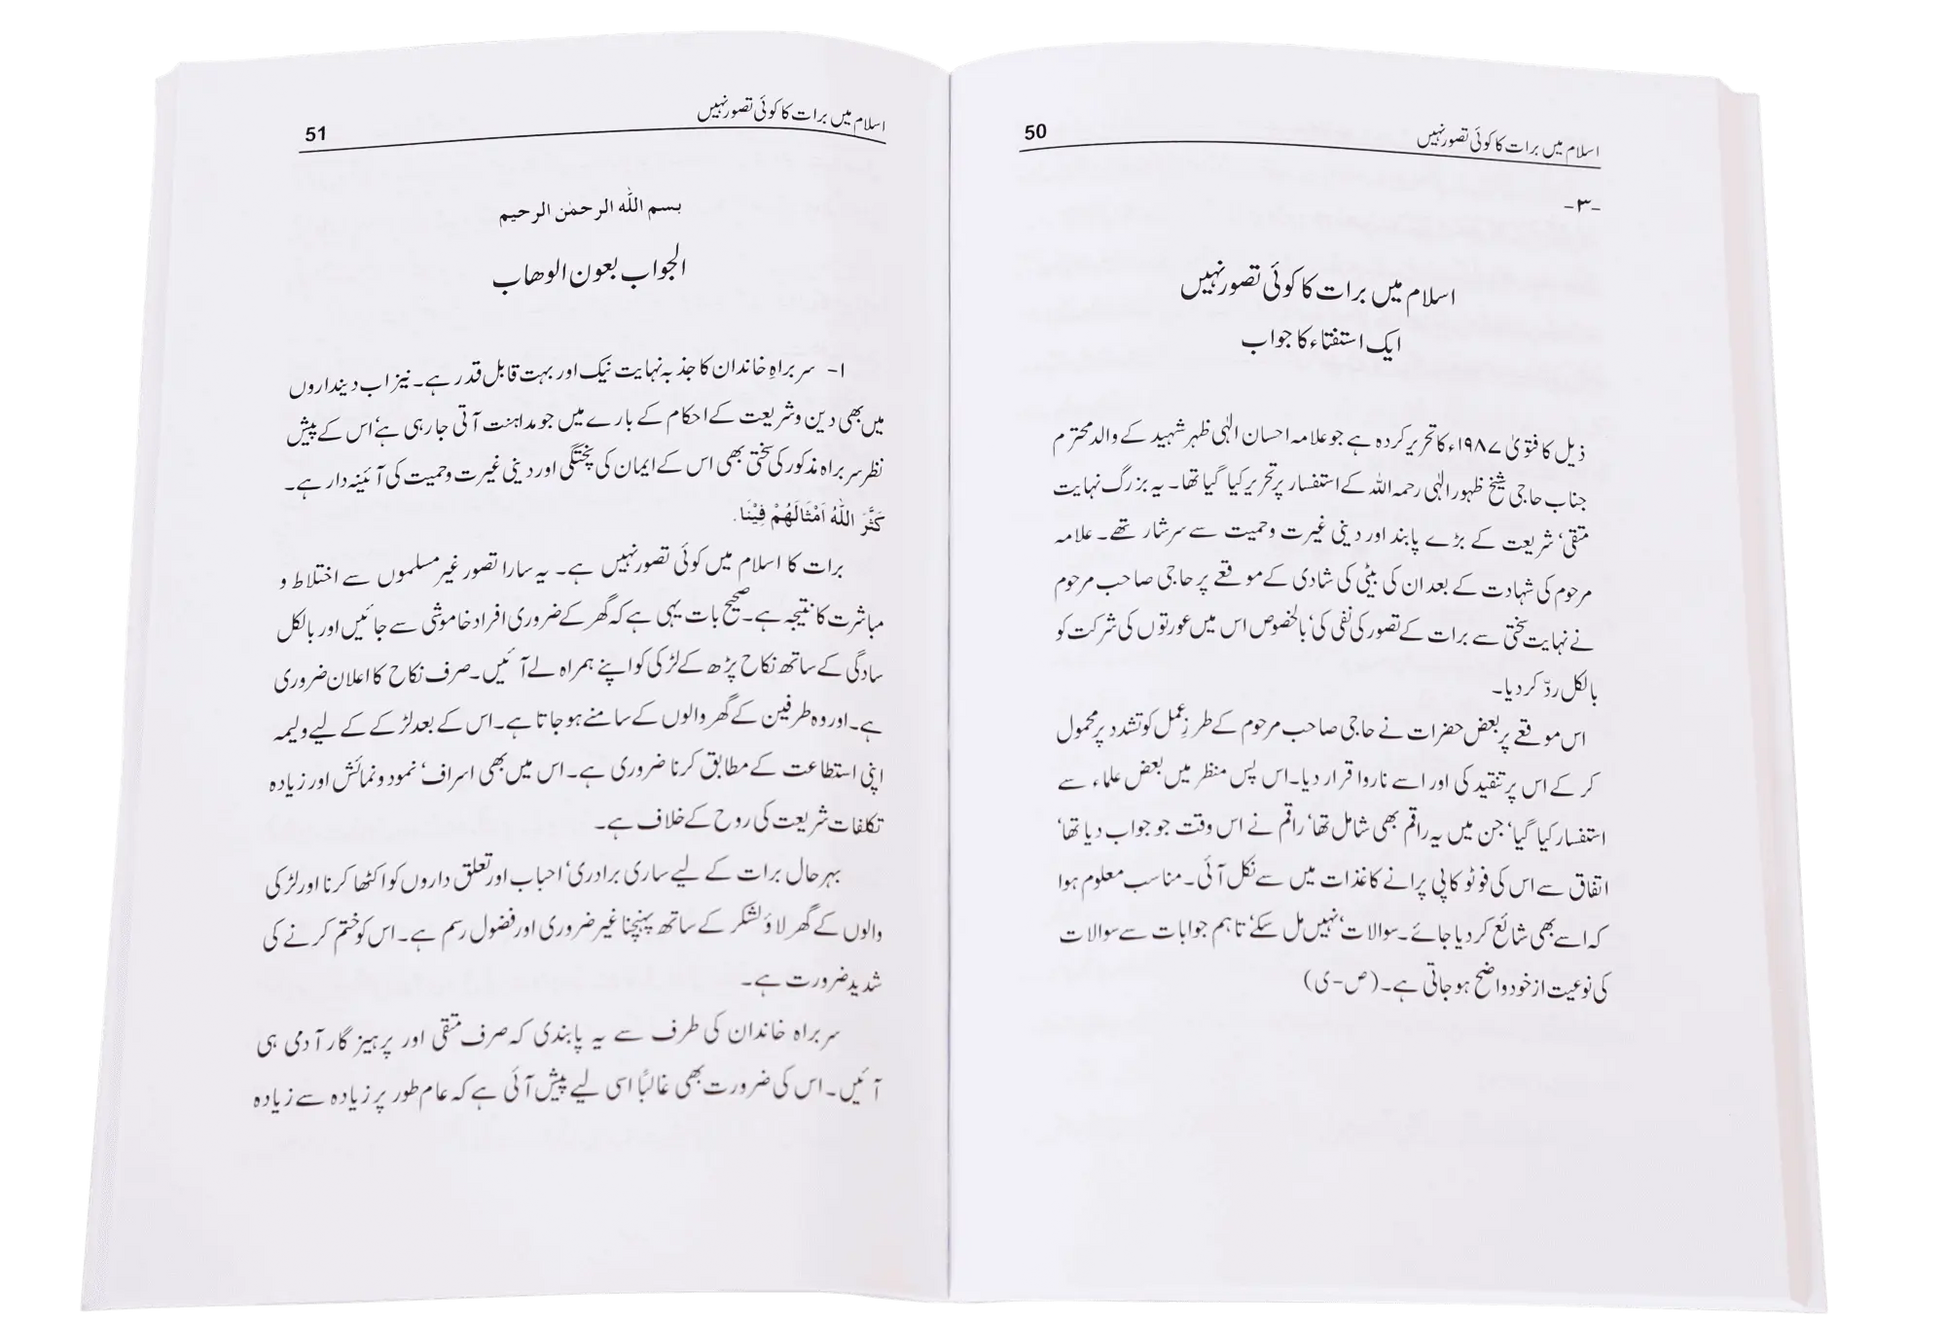 اسلام میں برات کا کوئی تصور نہیں 50
-۳-
اسلام میں برات کا کوئی تصور نہیں
ایک استفتاء کا جواب
ذیل کا فتویٰ ۱۹۸۷ء کا تحریر کردہ ہے جو علامہ احسان الٰہی ظہر شہید کے والد محترم
جناب حاجی شیخ ظہور الٰہی رحمہ اللہ کے استفسار پر تحریر کیا گیا تھا۔ یہ بزرگ نہایت
متقی‘ شریعت کے بڑے پابند اور دینی غیرت و حمیت سے سرشار تھے۔ علامہ
مرحوم کی شہادت کے بعد ان کی بیٹی کی شادی کے موقعے پر حاجی صاحب مرحوم
نے نہایت سختی سے برات کے تصور کی نفی کی‘ بالخصوص اس میں عورتوں کی شرکت کو
بالکل ردّ کر دیا۔
اس موقعے پر بعض حضرات نے حاجی صاحب مرحوم کے طرزِ عمل کو تشدد پر محمول
کر کے اس پر تنقید کی اور اسے ناروا قرار دیا۔ اس پس منظر میں بعض علماء سے
استفسار کیا گیا‘ جن میں یہ راقم بھی شامل تھا‘ راقم نے اس وقت جو جواب دیا تھا‘
اتفاق سے اس کی فوٹو کاپی پرانے کاغذات میں سے نکل آئی۔ مناسب معلوم ہوا
کہ اسے بھی شائع کر دیا جائے۔ سوالات‘ نہیں مل سکے‘ تاہم جوابات سے سوالات
کی نوعیت از خود واضح ہو جاتی ہے۔ (ص-ی)
اسلام میں برات کا کوئی تصور نہیں 51
بسم اللّٰہ الرحمٰن الرحیم
الجواب بعون الوھاب
۱- سربراہِ خاندان کا جذبہ نہایت نیک اور بہت قابل قدر ہے۔ نیز اب دینداروں
میں بھی دین و شریعت کے احکام کے بارے میں جو مداہنت آتی جا رہی ہے‘ اس کے پیش
نظر سربراہ مذکور کی سختی بھی اس کے ایمان کی پختگی اور دینی غیرت و حمیت کی آئینہ دار ہے۔
كَثَّرَ اللّٰهُ اَمْثَالَهُمْ فِيْنَا.
برات کا اسلام میں کوئی تصور نہیں ہے۔ یہ سارا تصور غیر مسلموں سے اختلاط و
مباشرت کا نتیجہ ہے۔ صحیح بات یہی ہے کہ گھر کے ضروری افراد خاموشی سے جائیں اور بالکل
سادگی کے ساتھ نکاح پڑھ کے لڑکی کو اپنے ہمراہ لے آئیں۔ صرف نکاح کا اعلان ضروری
ہے۔ اور وہ طرفین کے گھر والوں کے سامنے ہو جاتا ہے۔ اس کے بعد لڑکے کے لیے ولیمہ
اپنی استطاعت کے مطابق کرنا ضروری ہے۔ اس میں بھی اسراف‘ نمود و نمائش اور زیادہ
تکلفات شریعت کی روح کے خلاف ہے۔
بہرحال برات کے لیے ساری برادری‘ احباب اور تعلق داروں کو اکٹھا کرنا اور لڑکی
والوں کے گھر لاؤ لشکر کے ساتھ پہنچنا غیر ضروری اور فضول رسم ہے۔ اس کو ختم کرنے کی
شدید ضرورت ہے۔
سربراہ خاندان کی طرف سے یہ پابندی کہ صرف متقی اور پرہیز گار آدمی ہی
آئیں۔ اس کی ضرورت بھی غالباً اسی لیے پیش آئی ہے کہ عام طور پر زیادہ سے زیادہ